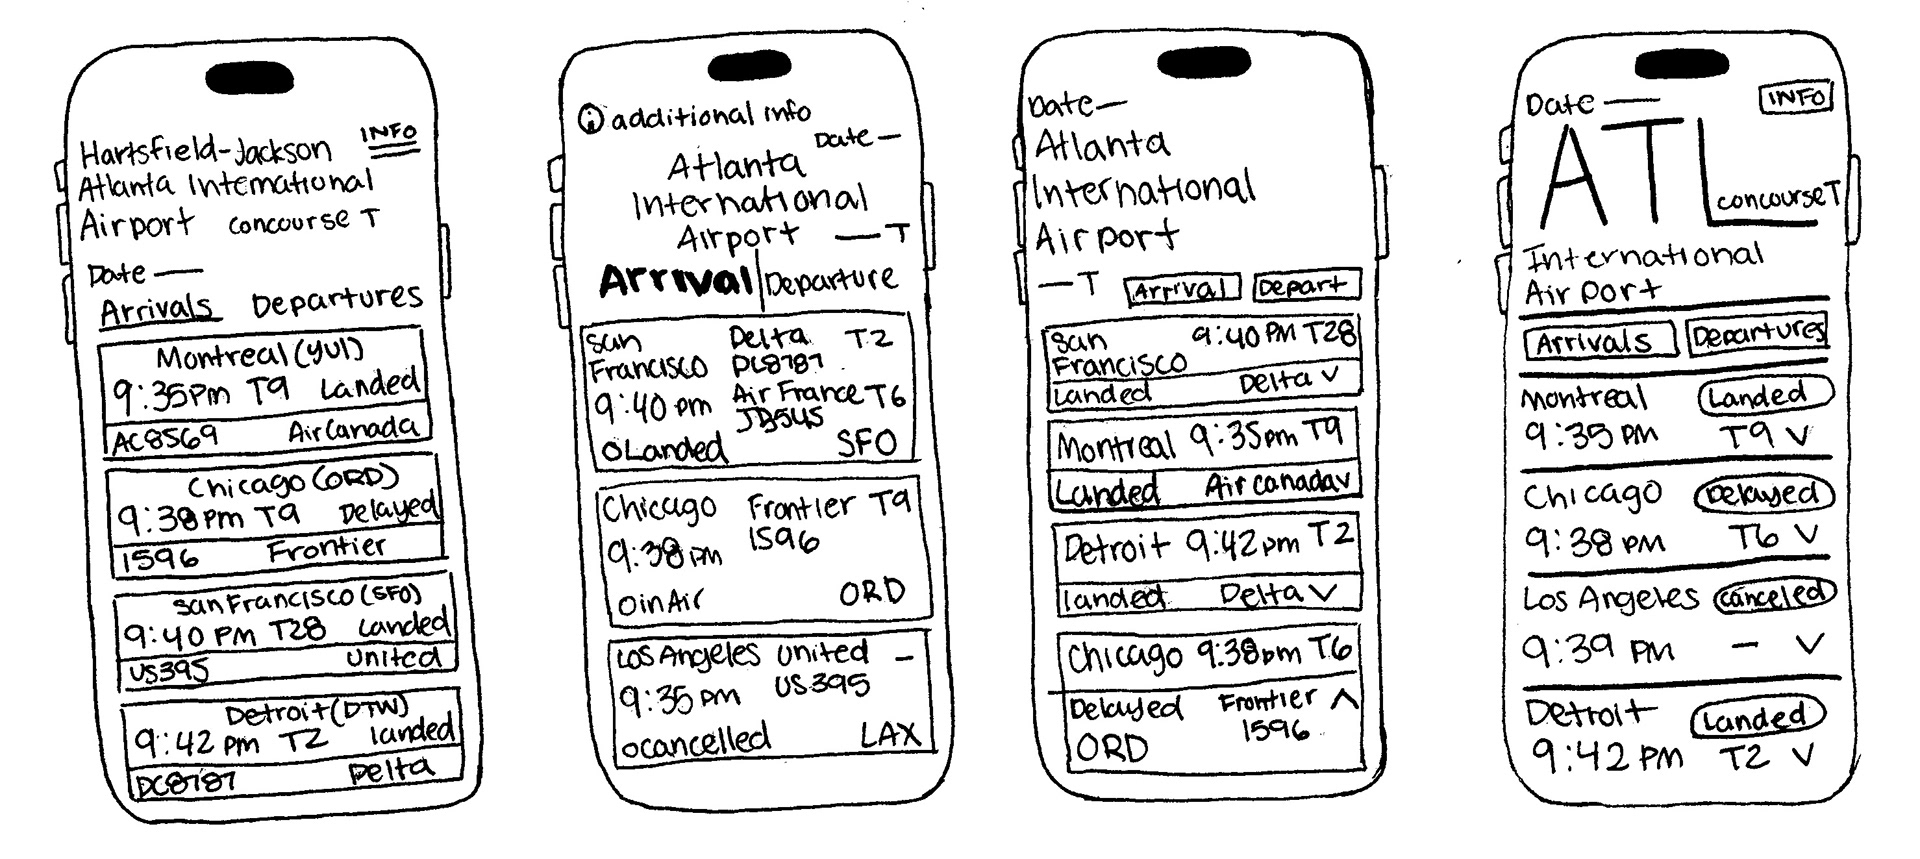 Hartsfield-Jackson INFO
Atlanta International
Airport concourse T
Date —
Arrivals Departures
Montreal (YUl)
9:35pm T9 Landed
AC8569 AirCanada
Chicago (ORD)
9:38pm T9 Delayed
1596 Frontier
San Francisco (SFO)
9:40 PM T28 Landed
US395 United
Detroit (DTW)
9:42 pm T2 landed
DC8787 Delta
i additional info
Date —
Atlanta
International
Airport — T
Arrival | Departure
San Delta T2
Francisco DC8787
9:40 pm Air France T6
JB5US
Landed SFO
Chicago Frontier T9
9:38pm 1596
in Air ORD
Los Angeles United –
9:35 pm US395
cancelled LAX
Date—
Atlanta
International
Airport
— T Arrival Depart
San 9:40 PM T28
Francisco
Landed Delta v
Montreal 9:35pm T9
Landed Air canada v
Detroit 9:42pm T2
landed Delta v
Chicago 9:38pm T6
Delayed Frontier ^
1596
ORD
Date — INFO
ATL
concourse T
International
Airport
Arrivals Departures
Montreal Landed
9:35 PM T9 v
Chicago Delayed
9:38 PM T6 v
Los Angeles canceled
9:39 PM – v
Detroit Landed
9:42 PM T2 v